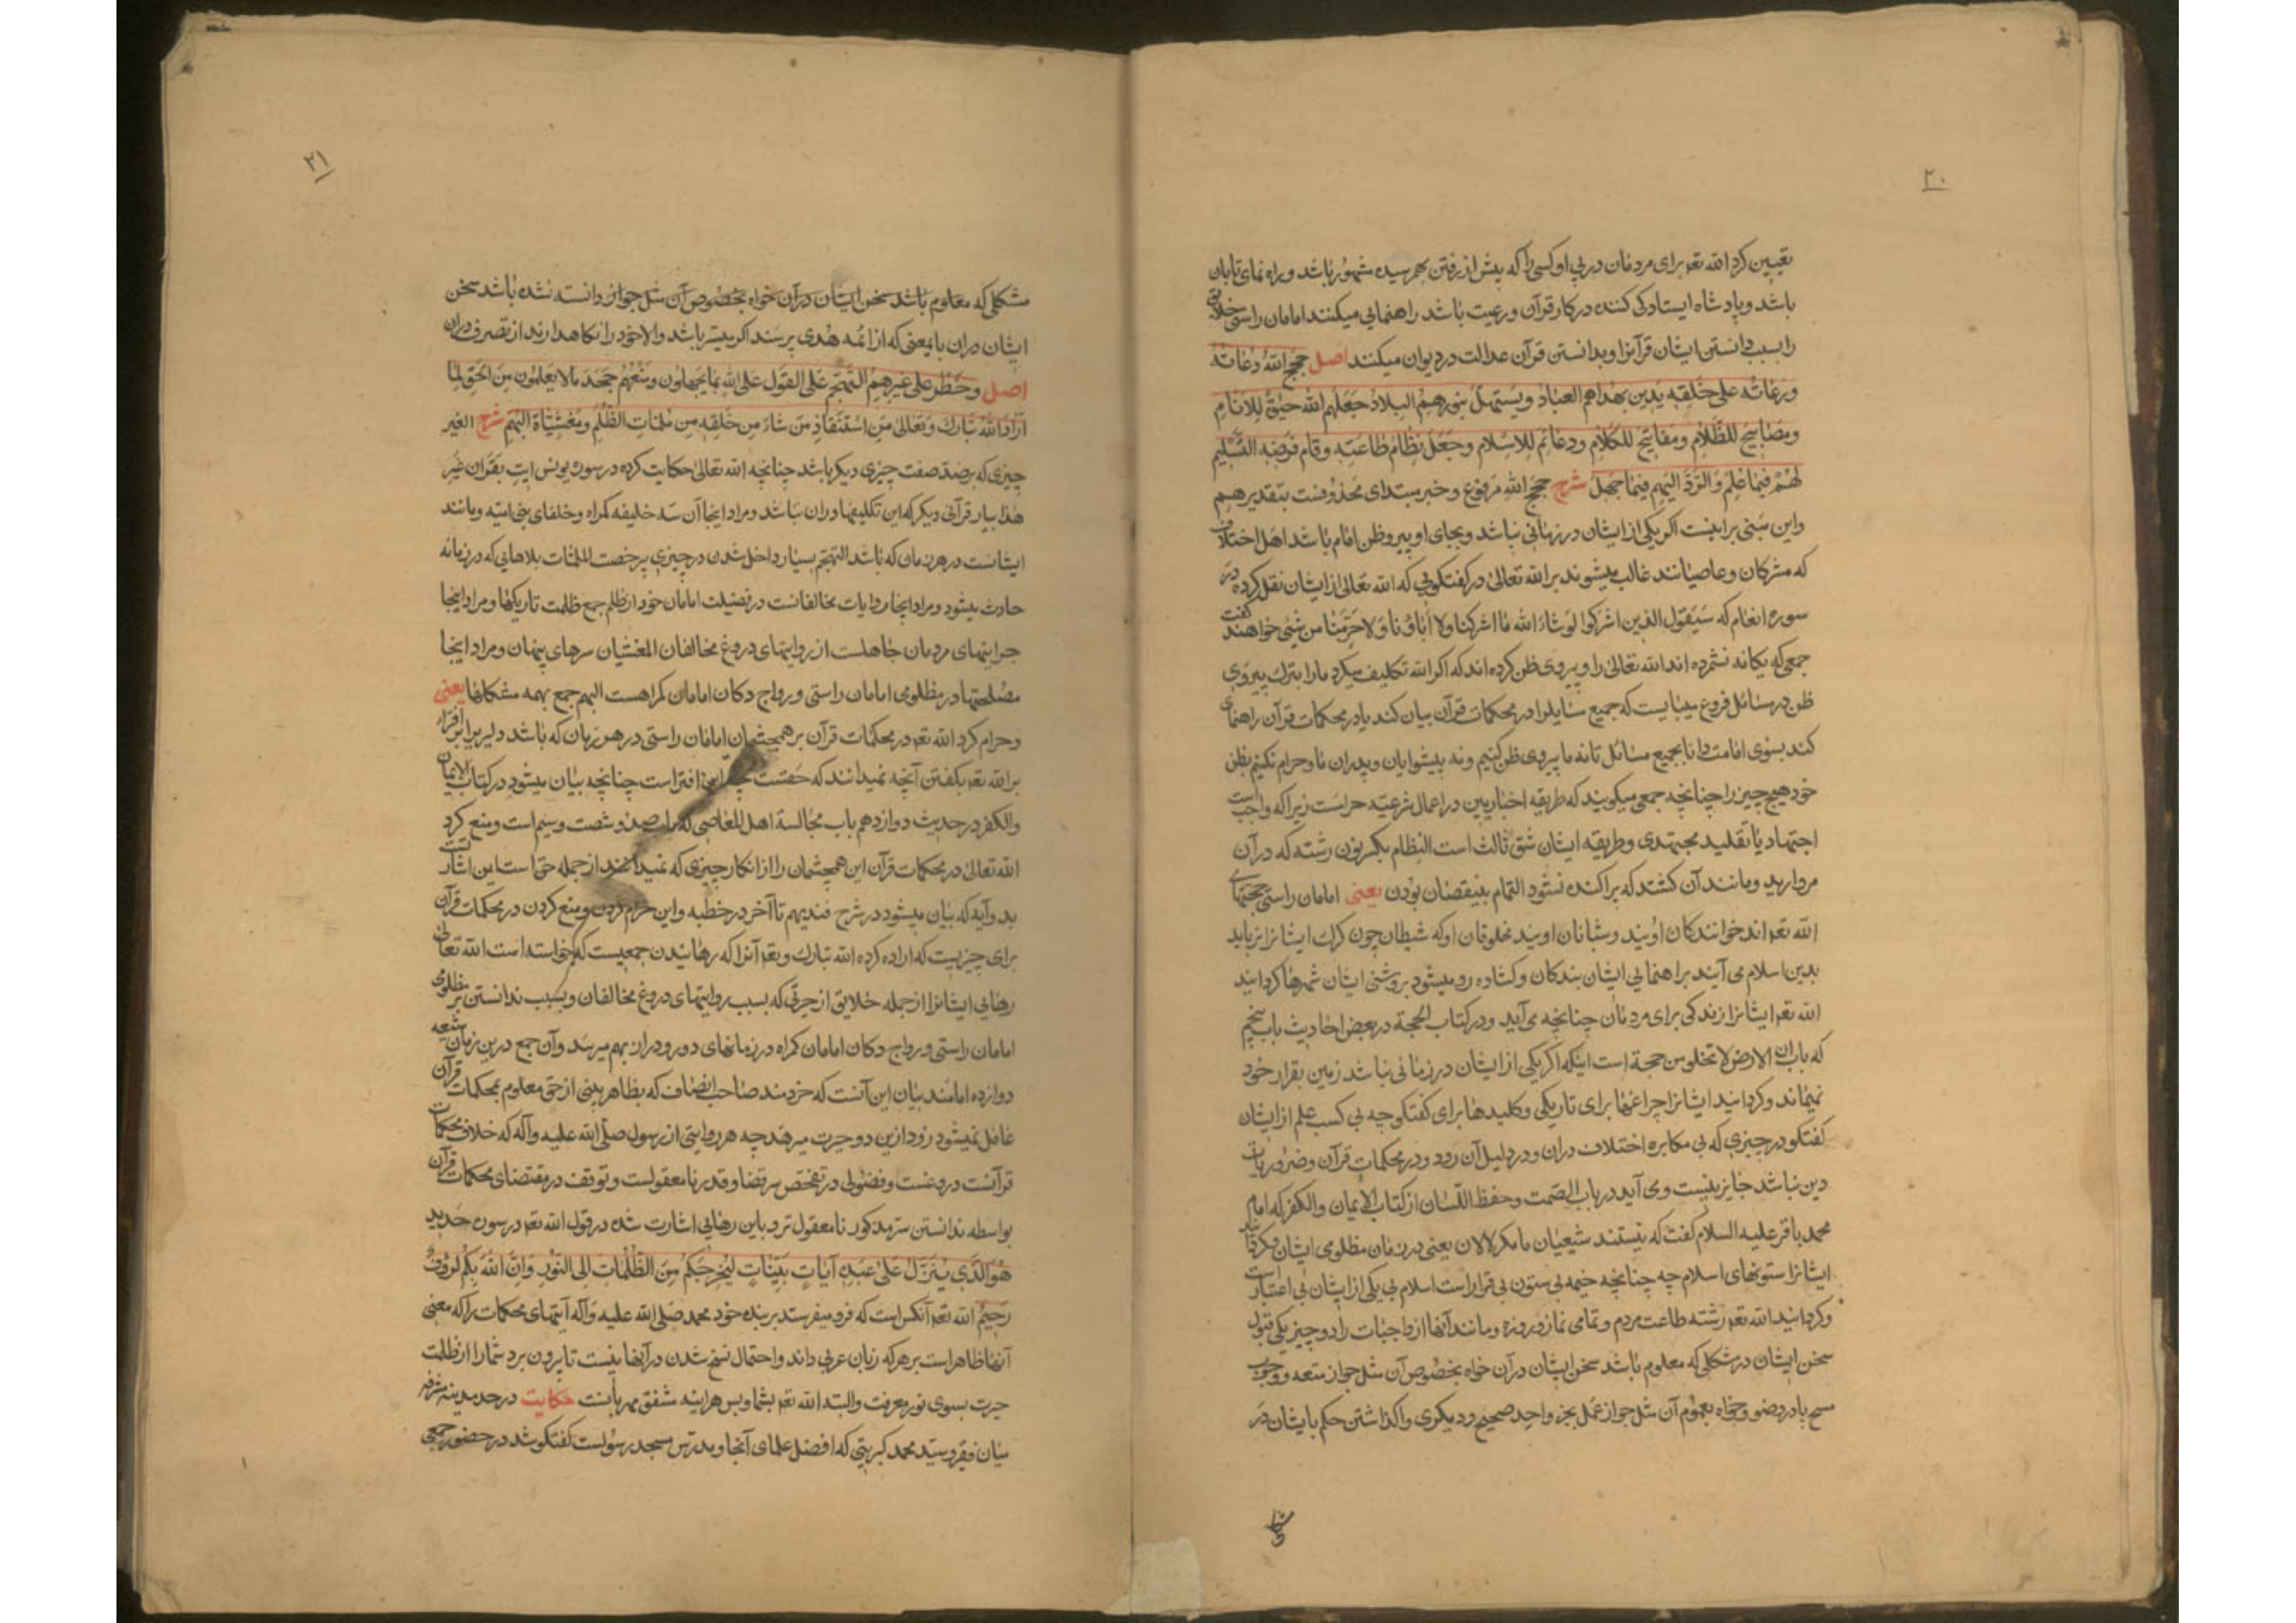 ۲۰
تعیین کرد الله تعه برای مردمان در پی او کسی را که پیش از رفتن بهم رسیده مشهور باشد و راه نمای تابان
باشد و پادشاه ایستادکی کننده در کار قرآن و رعیت باشد راهنمایی میکنند امامان راستی خلایق
را بسبب دانستن ایشان قرآنرا و بدانستن قرآن عدالت در دیوان میکنند اصل حجج الله و دعاته
و رعاته علی خلقه یدین بهداهم العباد و یستهل بنورهم البلاد جعلهم الله حیوة للانام
و مصابیح للظلام و مفاتیح للکلام و دعائم للاسلام و جعل نظام طاعته و تمام فرضه التسلیم
لهم فیما علم و الرد الیهم فیما جهل شرح حجج الله مرفوع و خبر مبتدای محذوفست بتقدیر هم
و این مبنی بر اینست اکر یکی از ایشان در زمانی نباشد و بجای او پیرو ظن امام باشد اهل اختلاف
که مشرکان و عاصیانند غالب میشوند بر الله تعالی در کفتکویی که الله تعالی از ایشان نقل کرده در
سوره انعام که سیقول الذین اشرکوا لو شاء الله ما اشرکنا ولا آباؤنا ولا حرمنا من شیئ خواهند کفت
جمعی که یکانه نشمرده اند الله تعالی را و پیروی ظن کرده اند که اکر الله تکلیف میکرد ما را بترک پیروی
ظن در مسائل فروع میبایست که جمیع مسایلرا در محکمات قرآن بیان کند یا در محکمات قرآن راهنمای
کند بسوی امامت دانا بجمیع مسائل تا نه ما پیروی ظن کنیم و نه پیشوایان و پدران ما و حرام نکنیم بظن
خود هیچ چیز را چنانچه جمعی میکویند که طریقه اخباریین در اعمال شرعیه حرامست زیرا که واجب است
اجتهاد یا تقلید مجتهدی و طریقه ایشان شق ثالث است النظام بکسر نون رشته که در آن
مروارید و مانند آن کشند که پراکنده نشود التمام بینقصان بودن یعنی امامان راستی حجتهای
الله تعه اند خوانندکان اویند و شبانان اویند مخلوقان او که شیطان چون کرک ایشانرا نرباید
بدین اسلام می آیند براهنمایی ایشان بندکان و کشاده رو میشود بروشنی ایشان شهرها کردانید
الله تعه ایشانرا زندکی برای مردمان چنانچه می آید و در کتاب الحجة در بعض احادیث باب پنجم
که باب ان الارض لا تخلو من حجة است اینکه اکر یکی از ایشان در زمانی نباشد زمین بقرار خود
نمیماند و کردانید ایشانرا چراغها برای تاریکی و کلیدها برای کفتکو چه بی کسب علم از ایشان
کفتکو در چیزی که بی مکابره اختلاف دران و در دلیل آن رود و در محکمات قرآن و ضروریات
دین نباشد جایز نیست و می آید در باب الصمت و حفظ اللسان از کتاب الایمان و الکفر که امام
محمد باقر علیه السلام کفت که نیستند شیعیان ما مکر لالان یعنی در زمان مظلومی ایشان و کردانید
ایشانرا ستونهای اسلام چه چنانچه خیمه بی ستون بی قرار است اسلام بی یکی از ایشان بی اعتبار است
و کردانید الله تعه رشته طاعت مردم و تمامی نماز و روزه و مانند آنها از واجبات را دو چیز یکی قبول
سخن ایشان در مشکلی که معلوم باشد سخن ایشان در آن خواه بخصوص آن مثل جواز متعه و وجوب
مسح پا در وضو و خواه بعموم آن مثل جواز عمل بخبر واحد صحیح و دیکری واکذاشتن حکم بایشان در
۲۱
مشکلی که معلوم باشد سخن ایشان در آن خواه بخصوص آن مثل جواز دانسته نشده باشد سخن
ایشان دران بانمعنی که از ائمه هدی پرسند اکر میسر باشد و الا خود را نکاهدارند از تصرف دران
اصل و حظر علی غیرهم التهجم علی القول علی الله بما یجهلون و منعهم جحد ما لا یعلمون من الحق لما
اراد الله تبارک و تعالی من استنقاذ من شاء من خلقه من ملمات الظلم و مغشیات البهم شرح الغیر
چیزی که بر ضد صفت چیزی دیکر باشد چنانچه الله تعالی حکایت کرده در سوره یونس ایت بقرآن غیر
هذا بیار قرآنی دیکر که این تکلیفها دران نباشد و مراد اینجا آن سه خلیفه کمراه و خلفای بنی امیه و مانند
ایشانست در هر زمان که باشد التهجم بسیار داخل شدن در چیزی بی رخصت الملمات بلاهایی که در زمانه
حادث میشود و مراد اینجا روایات مخالفانست در فضیلت امامان خود الظلم جمع ظلمت تاریکیها و مراد اینجا
حرایتهای مردمان جاهلست از روایتهای دروغ مخالفان المغشیان سرهای پنهان و مراد اینجا
مصلحتها در مظلومی امامان راستی و رواج دکان امامان کمراهست البهم جمع بهمه مشکلها یعنی
و حرام کرد الله تعه در محکمات قرآن بر همچشمان امامان راستی در هر زمان که باشد دلیری را بر افترا
بر الله تعه بکفتن آنچه نمیدانند که حقست چه این افترا است چنانچه بیان میشود در کتاب الایمان
و الکفر در حدیث دوازدهم باب مجالسة اهل المعاصی که باب صد و شصت و سیم است و منع کرد
الله تعالی در محکمات قرآن این همچشمان را از انکار چیزی که نمیدانند از جمله حق است این اشارت
بدو آیه که بیان میشود در شرح فندبهم تا آخر در خطبه و این حرام کردن و منع کردن در محکمات قرآن
برای چیزیست که اراده کرده الله تبارک و تعه آنرا که رهانیدن جمعیست که خواسته است الله تعالی
رهایی ایشانرا از جمله خلایق از حیرتی که بسبب روایتهای دروغ مخالفان و بسبب ندانستن سر مظلومی
امامان راستی و رواج دکان امامان کمراه در زمانهای دور و دراز بهم میرسد و آن جمع درین زمان شیعه
دوازده امامند بیان این آنست که خردمند صاحب انصاف که بظاهر بینی از حق معلوم بمحکمات قرآن
غافل نمیشود زود ازین دو حیرت میرهد چه هر روایتی از رسول صلی الله علیه و آله که خلاف محکمات
قرآنست دروغست و فضولی در تفحص سر قضا و قدر نامعقولست و توقف در مقتضای محکمات قرآن
بواسطه ندانستن سر مذکور نامعقول تر و باین رهایی اشارت شده در قول الله تعه در سوره حدید
هو الذی ینزل علی عبده آیات بینات لیخرجکم من الظلمات الی النور و ان الله بکم لرؤف
رحیم الله تعه آنکس است که فرو میفرستد بر بنده خود محمد صلی الله علیه و آله آیتهای محکمات را که معنی
آنها ظاهر است بر هر که زبان عربی داند و احتمال نسخ شدن در آنها نیست تا بیرون برد شما را از ظلمت
حیرت بسوی نور معرفت و البته الله تعه بشما و بس هراینه مشفق مهربانست حکایت در حد مدینه مشرفه
میان فقیر و سید محمد کبریتی که افضل علمای آنجا و مدرس مسجد رسولست کفتکو شد در حضور جمعی